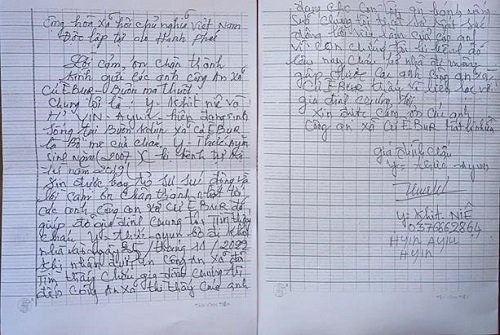 Cộng hòa xã hội chủ nghĩa Việt Nam
Độc lập tự do Hạnh Phúc
Lời cảm ơn chân thành
kính gửi các anh công An xã
CưEBuR - Buôn ma thuột
Chúng tôi là: Y- khit niê và
H' YIN - Ayun hiện đang sinh
sống tại Buôn xã CưEBuR
là Bố mẹ của cháu, Y- Thức Ayun
sinh ngày 2007 bị bệnh tự kỷ
từ năm 2019
Xin được bày tỏ sự động và
lời cảm ơn chân thành nhất tới
các anh công an xã Cư EBuR đã
giúp đỡ gia đình chúng tôi Tìm thấy
cháu Y- Thức - ayun bỏ đi khỏi
nhà vào ngày 25 / tháng 11 / 2022
khi nhận được tin công An xã đã
tìm thấy cháu gia đình chúng tôi
đến công An xã thì thấy các anh
đang
cho chúng tôi
động của các anh
vì con chúng tôi bị bệnh đã
lâu nay
gặp được các anh công an xã
CưEBuR thấy và liên hệ với
gia đình chúng tôi.
Xin được cảm ơn các anh
Công an xã Cư EBuR
gia đình cháu
Y- Thức Ayun
Y khit NIÊ
0357862864
HYIN AYUN
HYIN